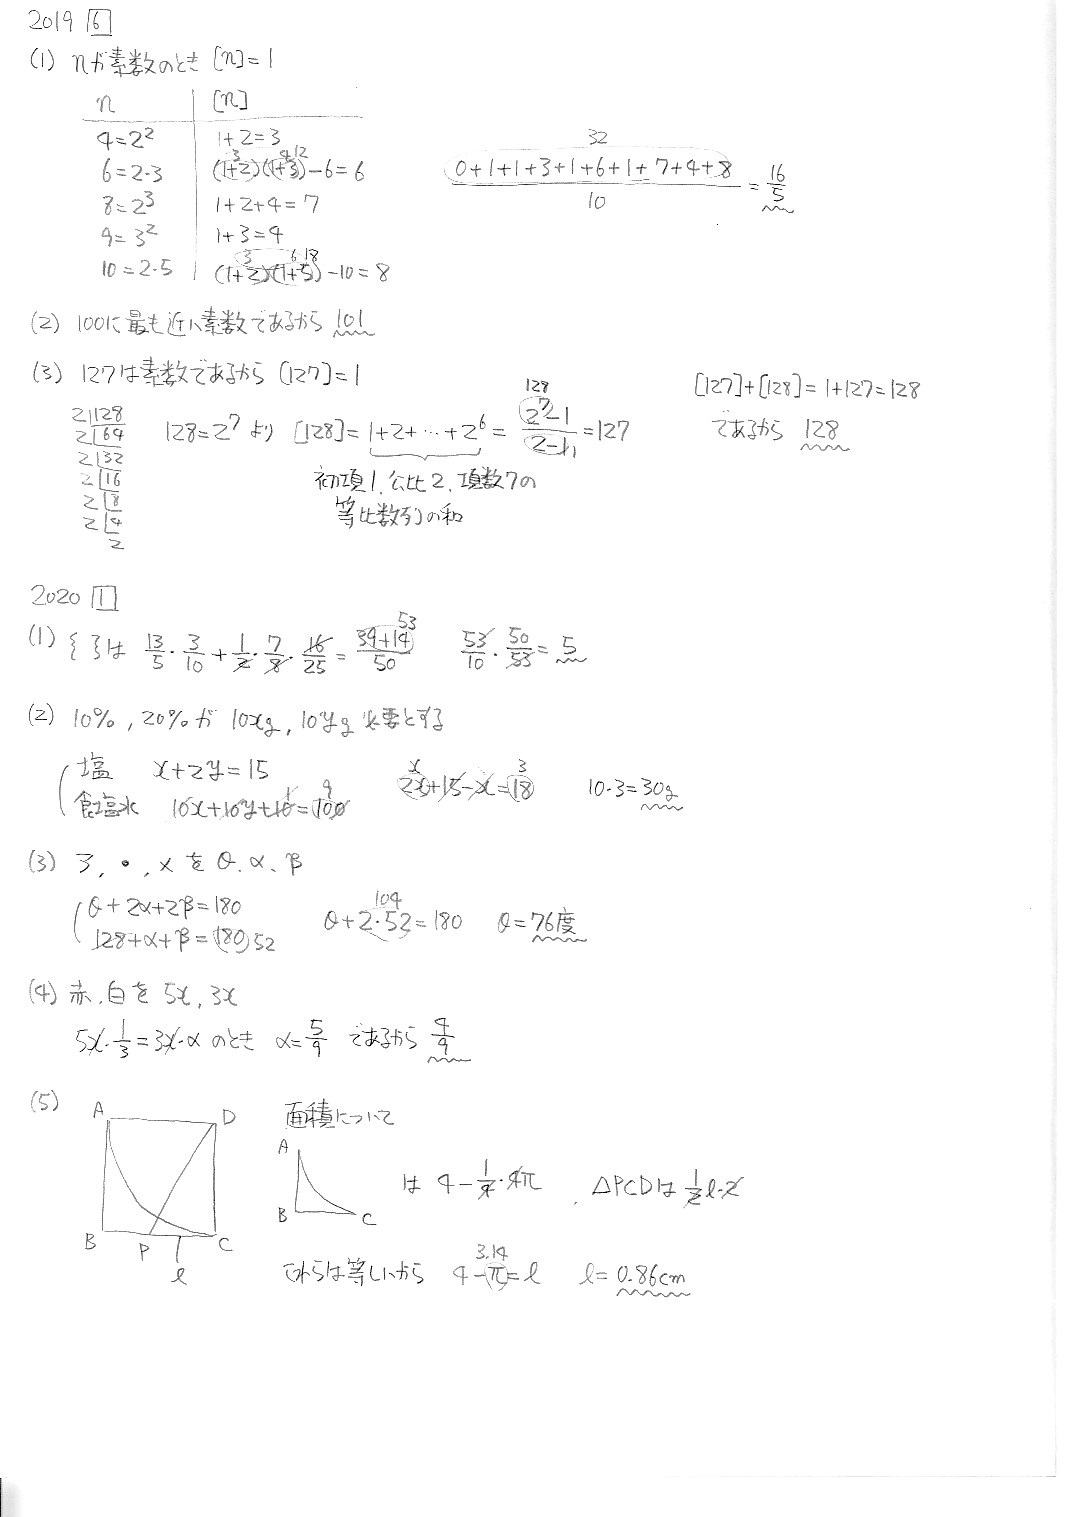 2019 6
(1) nが素数のとき [n]=1
n [n]
4=2² 1+2=3
6=2・3 (1+2)(1+3)-6=6
3 4 12
8=2³ 1+2+4=7
9=3² 1+3=4
10=2・5 (1+2)(1+5)-10=8
3 6 18
32
0+1+1+3+1+6+1+7+4+8
10
= 16/5
(2) 100に最も近い素数であるから 101
(3) 127は素数であるから [127]=1
2|128
2|64
2|32
2|16
2|8
2|4
2
128=2⁷ より [128]=1+2+…+2⁶= (2⁷-1)/(2-1) =127
128
初項1, 公比2, 項数7の
等比数列の和
[127]+[128]=1+127=128
であるから 128
2020 1
(1) { }は 13/5・3/10+1/2・7/8・16/25= (39+14)/50 53/10・50/53=5
53
(2) 10%, 20%が 10xg, 10yg 必要とする
塩 x+2y=15
食塩水 10x+10y+10=100
1 9
2x+15-x=18
x 3
10・3=30g
(3) ア, •, ×を θ, α, β
θ+2α+2β=180
128+α+β=180 52
θ+2・52=180
104
θ=76度
(4) 赤, 白を 5x, 3x
5x・1/3=3x・α のとき α=5/9 であるから 4/9
(5)
A D
B P C
l
面積について
A
B C
は 4-1/4・4π , △PCDは 1/2 l・2
これらは等しいから 4-π=l
3.14
l=0.86cm